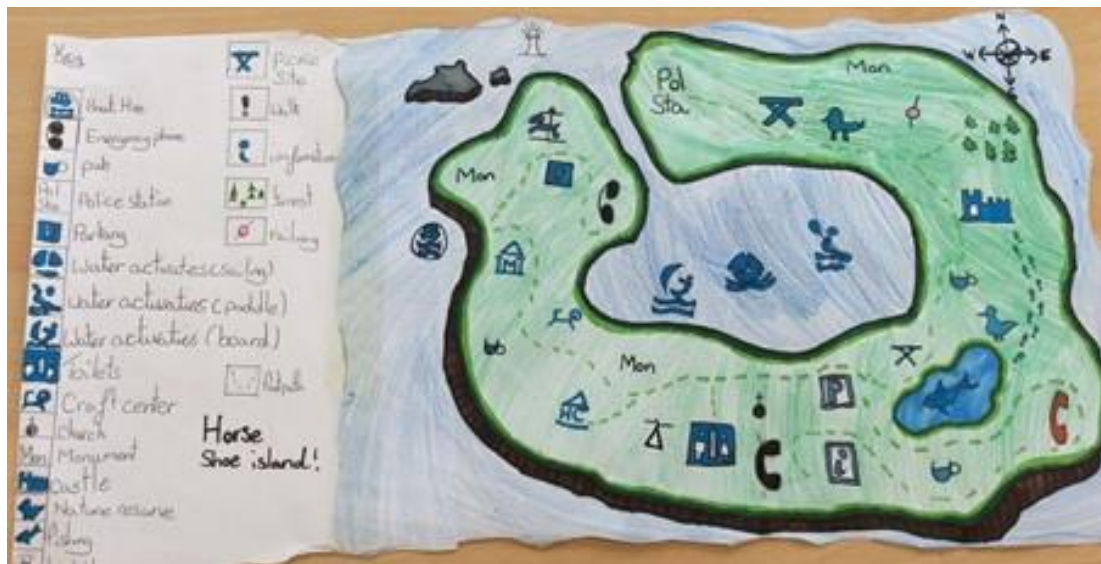 Key
Emergency phone
pub
Pol
Sta
Police station
Parking
Water activities (paddle)
Water activities (board)
Toilets
Craft center
church
Mon
Monument
castle
Nature reserve
fishing
Picnic
Site
walk
information
forest
Footpath
Horse
Shoe island!
N
W
E
Pol
Sta
Mon
Mon
P
M
Mon
HC
P
i